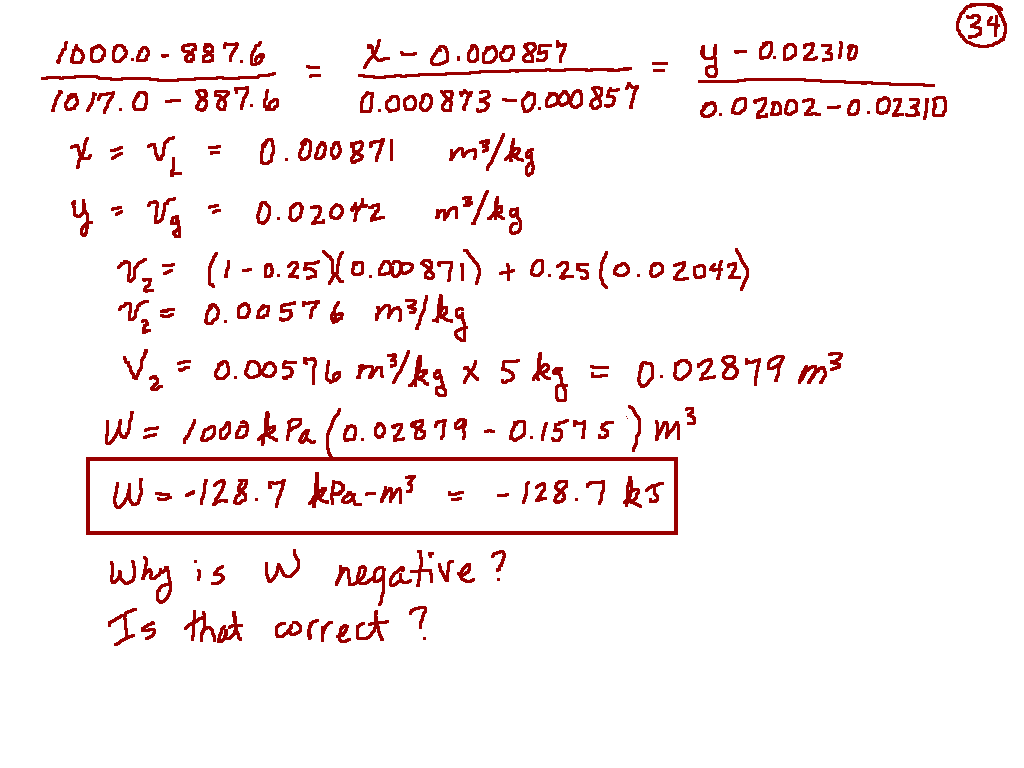 34
1000.0 - 887.6 / 1017.0 - 887.6 = x - 0.000857 / 0.000873 - 0.000857 = y - 0.02310 / 0.02002 - 0.02310
x = v_L = 0.000871 m³/kg
y = v_g = 0.02042 m³/kg
v₂ = (1 - 0.25)(0.000871) + 0.25(0.02042)
v₂ = 0.00576 m³/kg
V₂ = 0.00576 m³/kg x 5 kg = 0.02879 m³
W = 1000 kPa (0.02879 - 0.1575) m³
W = -128.7 kPa-m³ = -128.7 kJ
Why is W negative?
Is that correct?